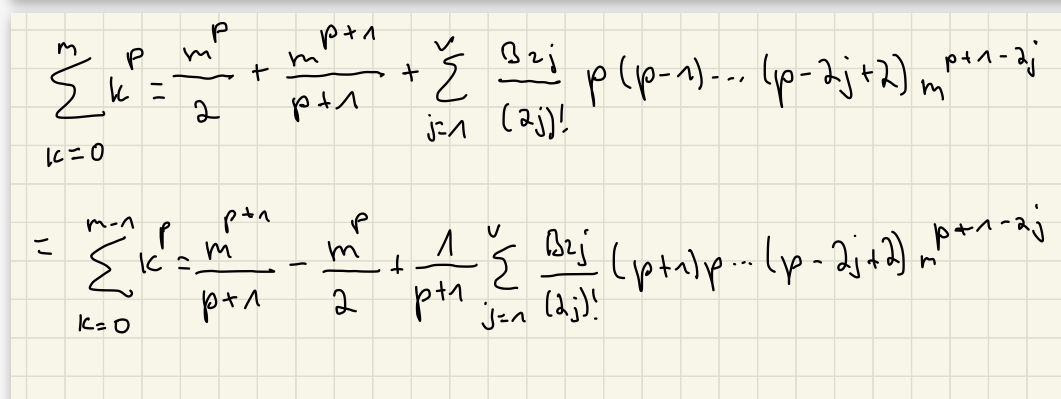 \sum_{k=0}^{m} k^p = \frac{m^p}{2} + \frac{m^{p+1}}{p+1} + \sum_{j=1}^{v} \frac{B_{2j}}{(2j)!} p(p-1)\cdots(p-2j+2) m^{p+1-2j}
= \sum_{k=0}^{m-1} k^p = \frac{m^{p+1}}{p+1} - \frac{m^p}{2} + \frac{1}{p+1} \sum_{j=1}^{v} \frac{B_{2j}}{(2j)!} (p+1)p\cdots(p-2j+2) m^{p+1-2j}